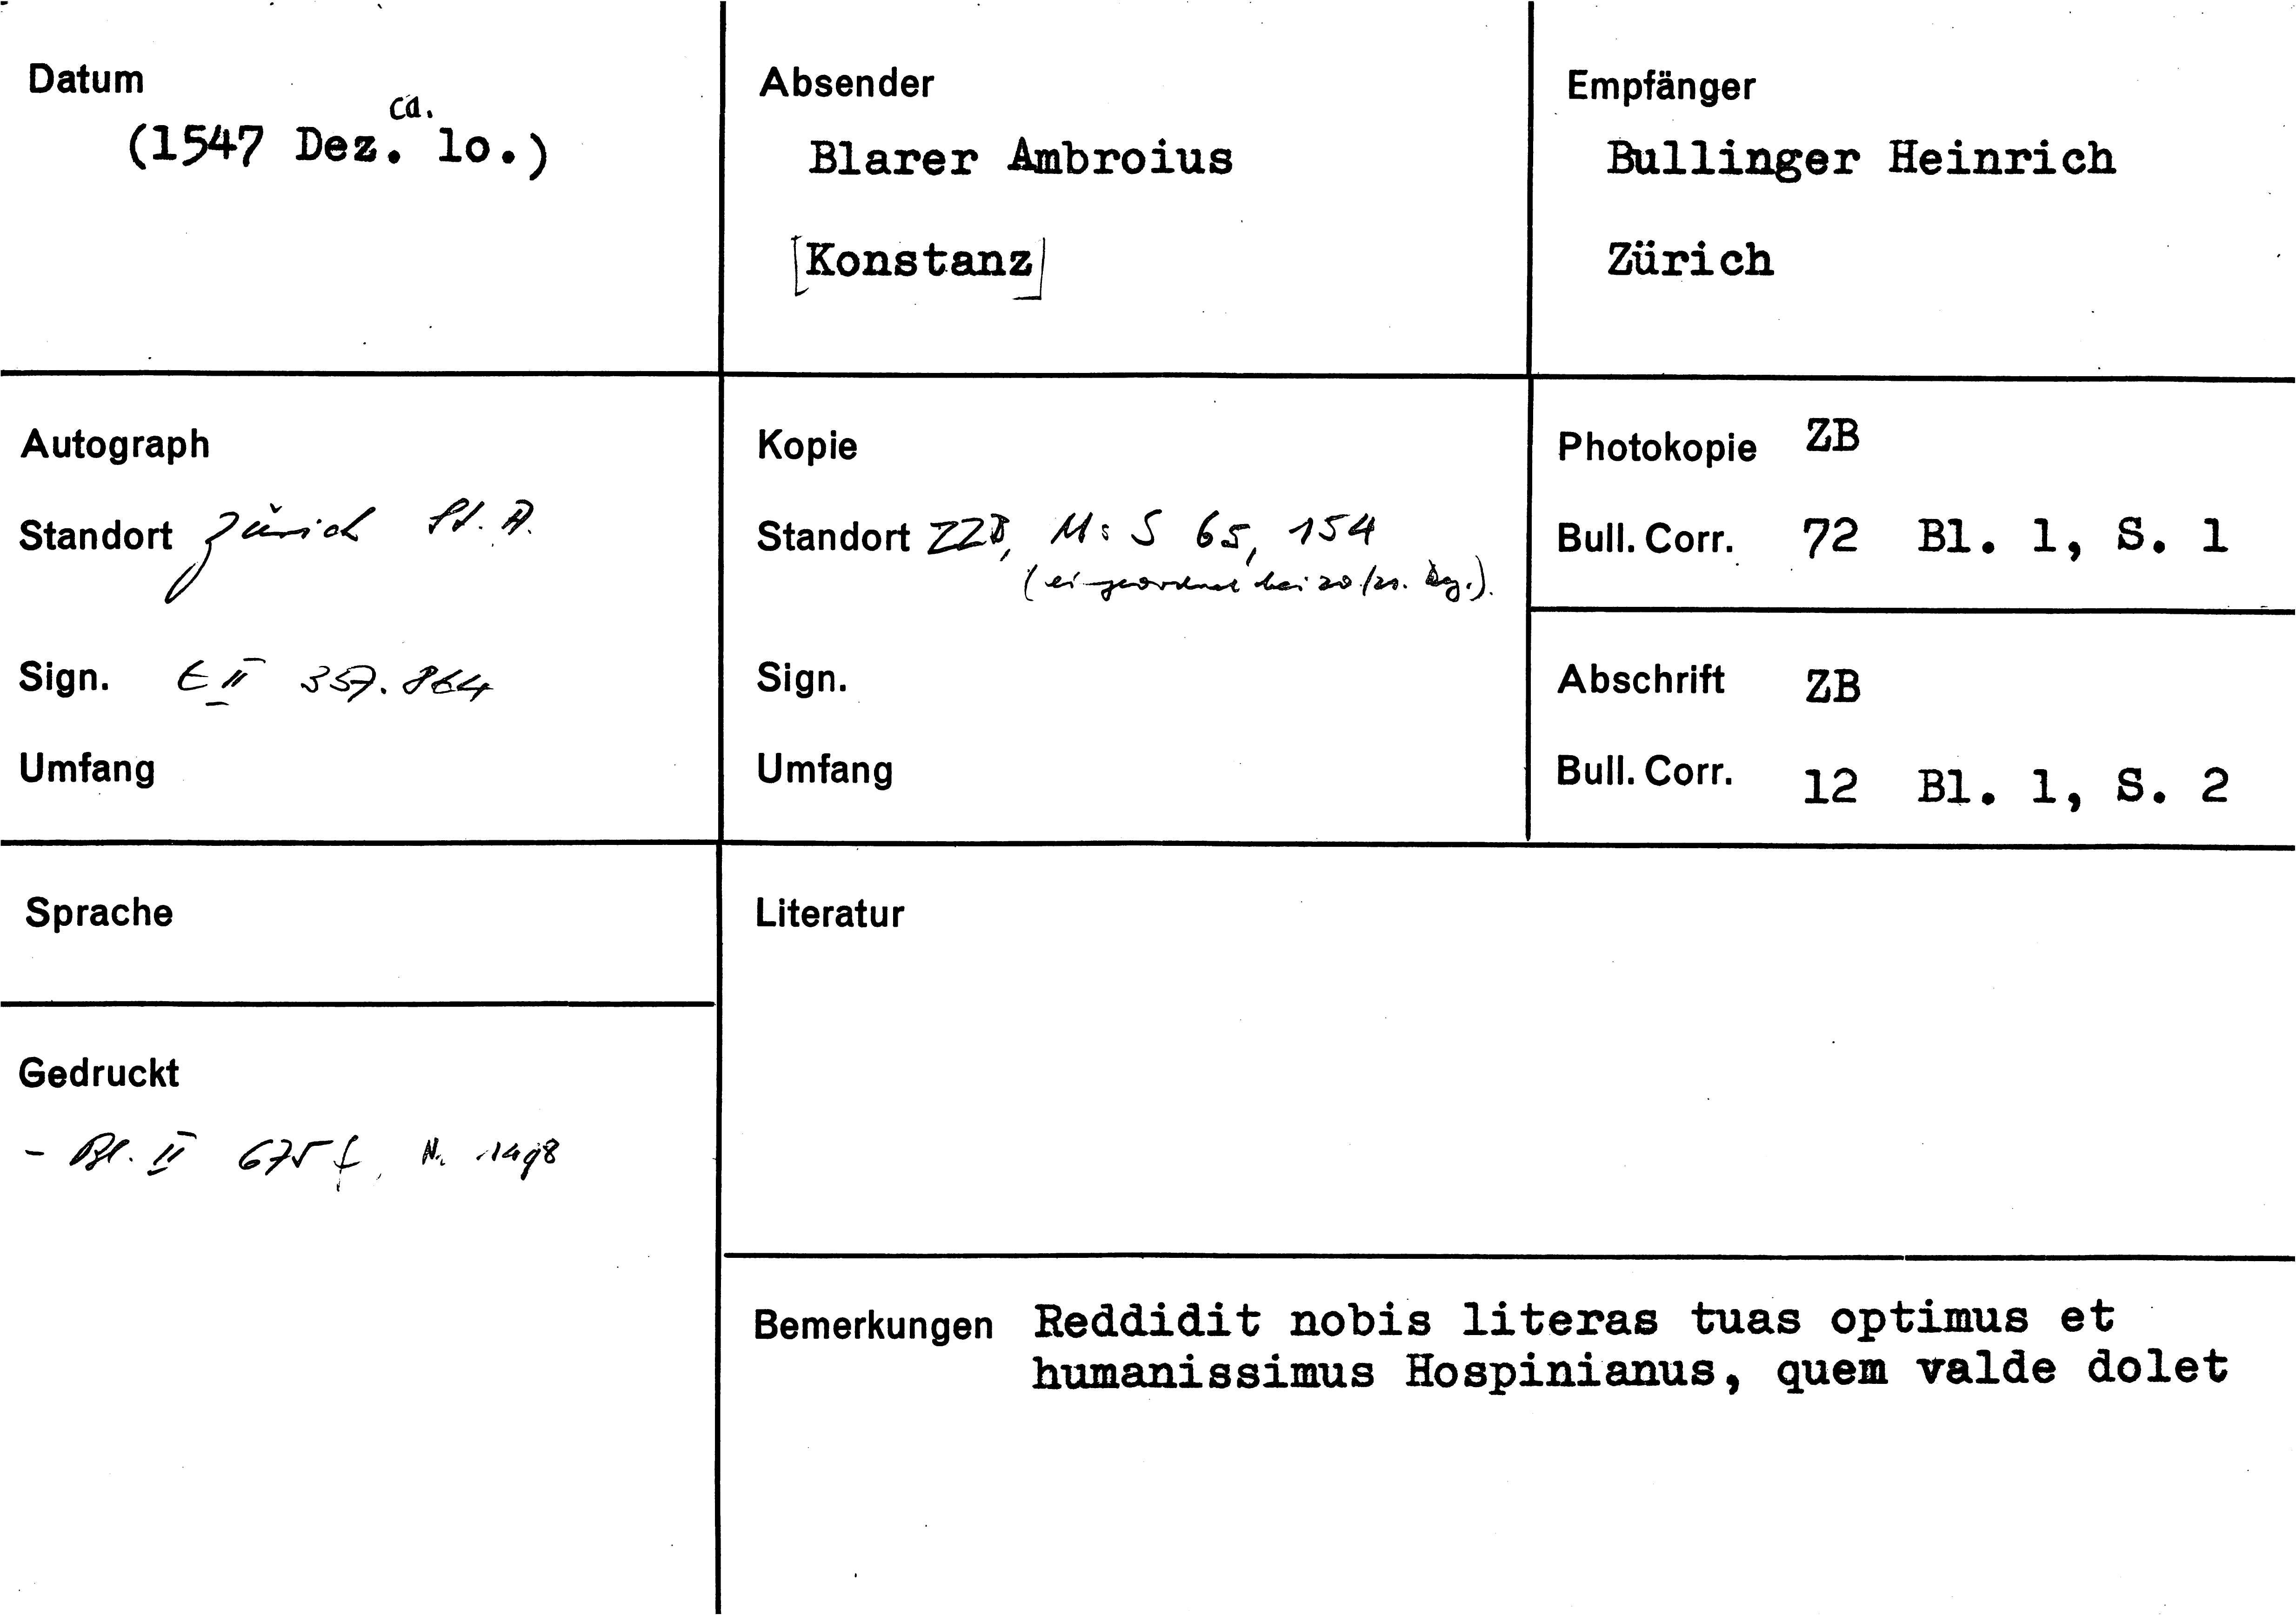 Datum
ca.
(1547 Dez. lo.)
Absender
Blarer Ambroius
[Konstanz]
Empfänger
Bullinger Heinrich
Zürich
Autograph
Standort Zürich St. A.
Sign. E II 357. 864
Umfang
Kopie
Standort ZZB, Ms S 65, 154
(eingeordnet bei 20/21. Dez.).
Sign.
Umfang
Photokopie ZB
Bull. Corr. 72 Bl. 1, S. 1
Abschrift ZB
Bull. Corr. 12 Bl. 1, S. 2
Sprache
Gedruckt
- Bl. II 675 f, N. 1498
Literatur
Bemerkungen Reddidit nobis literas tuas optimus et
humanissimus Hospinianus, quem valde dolet